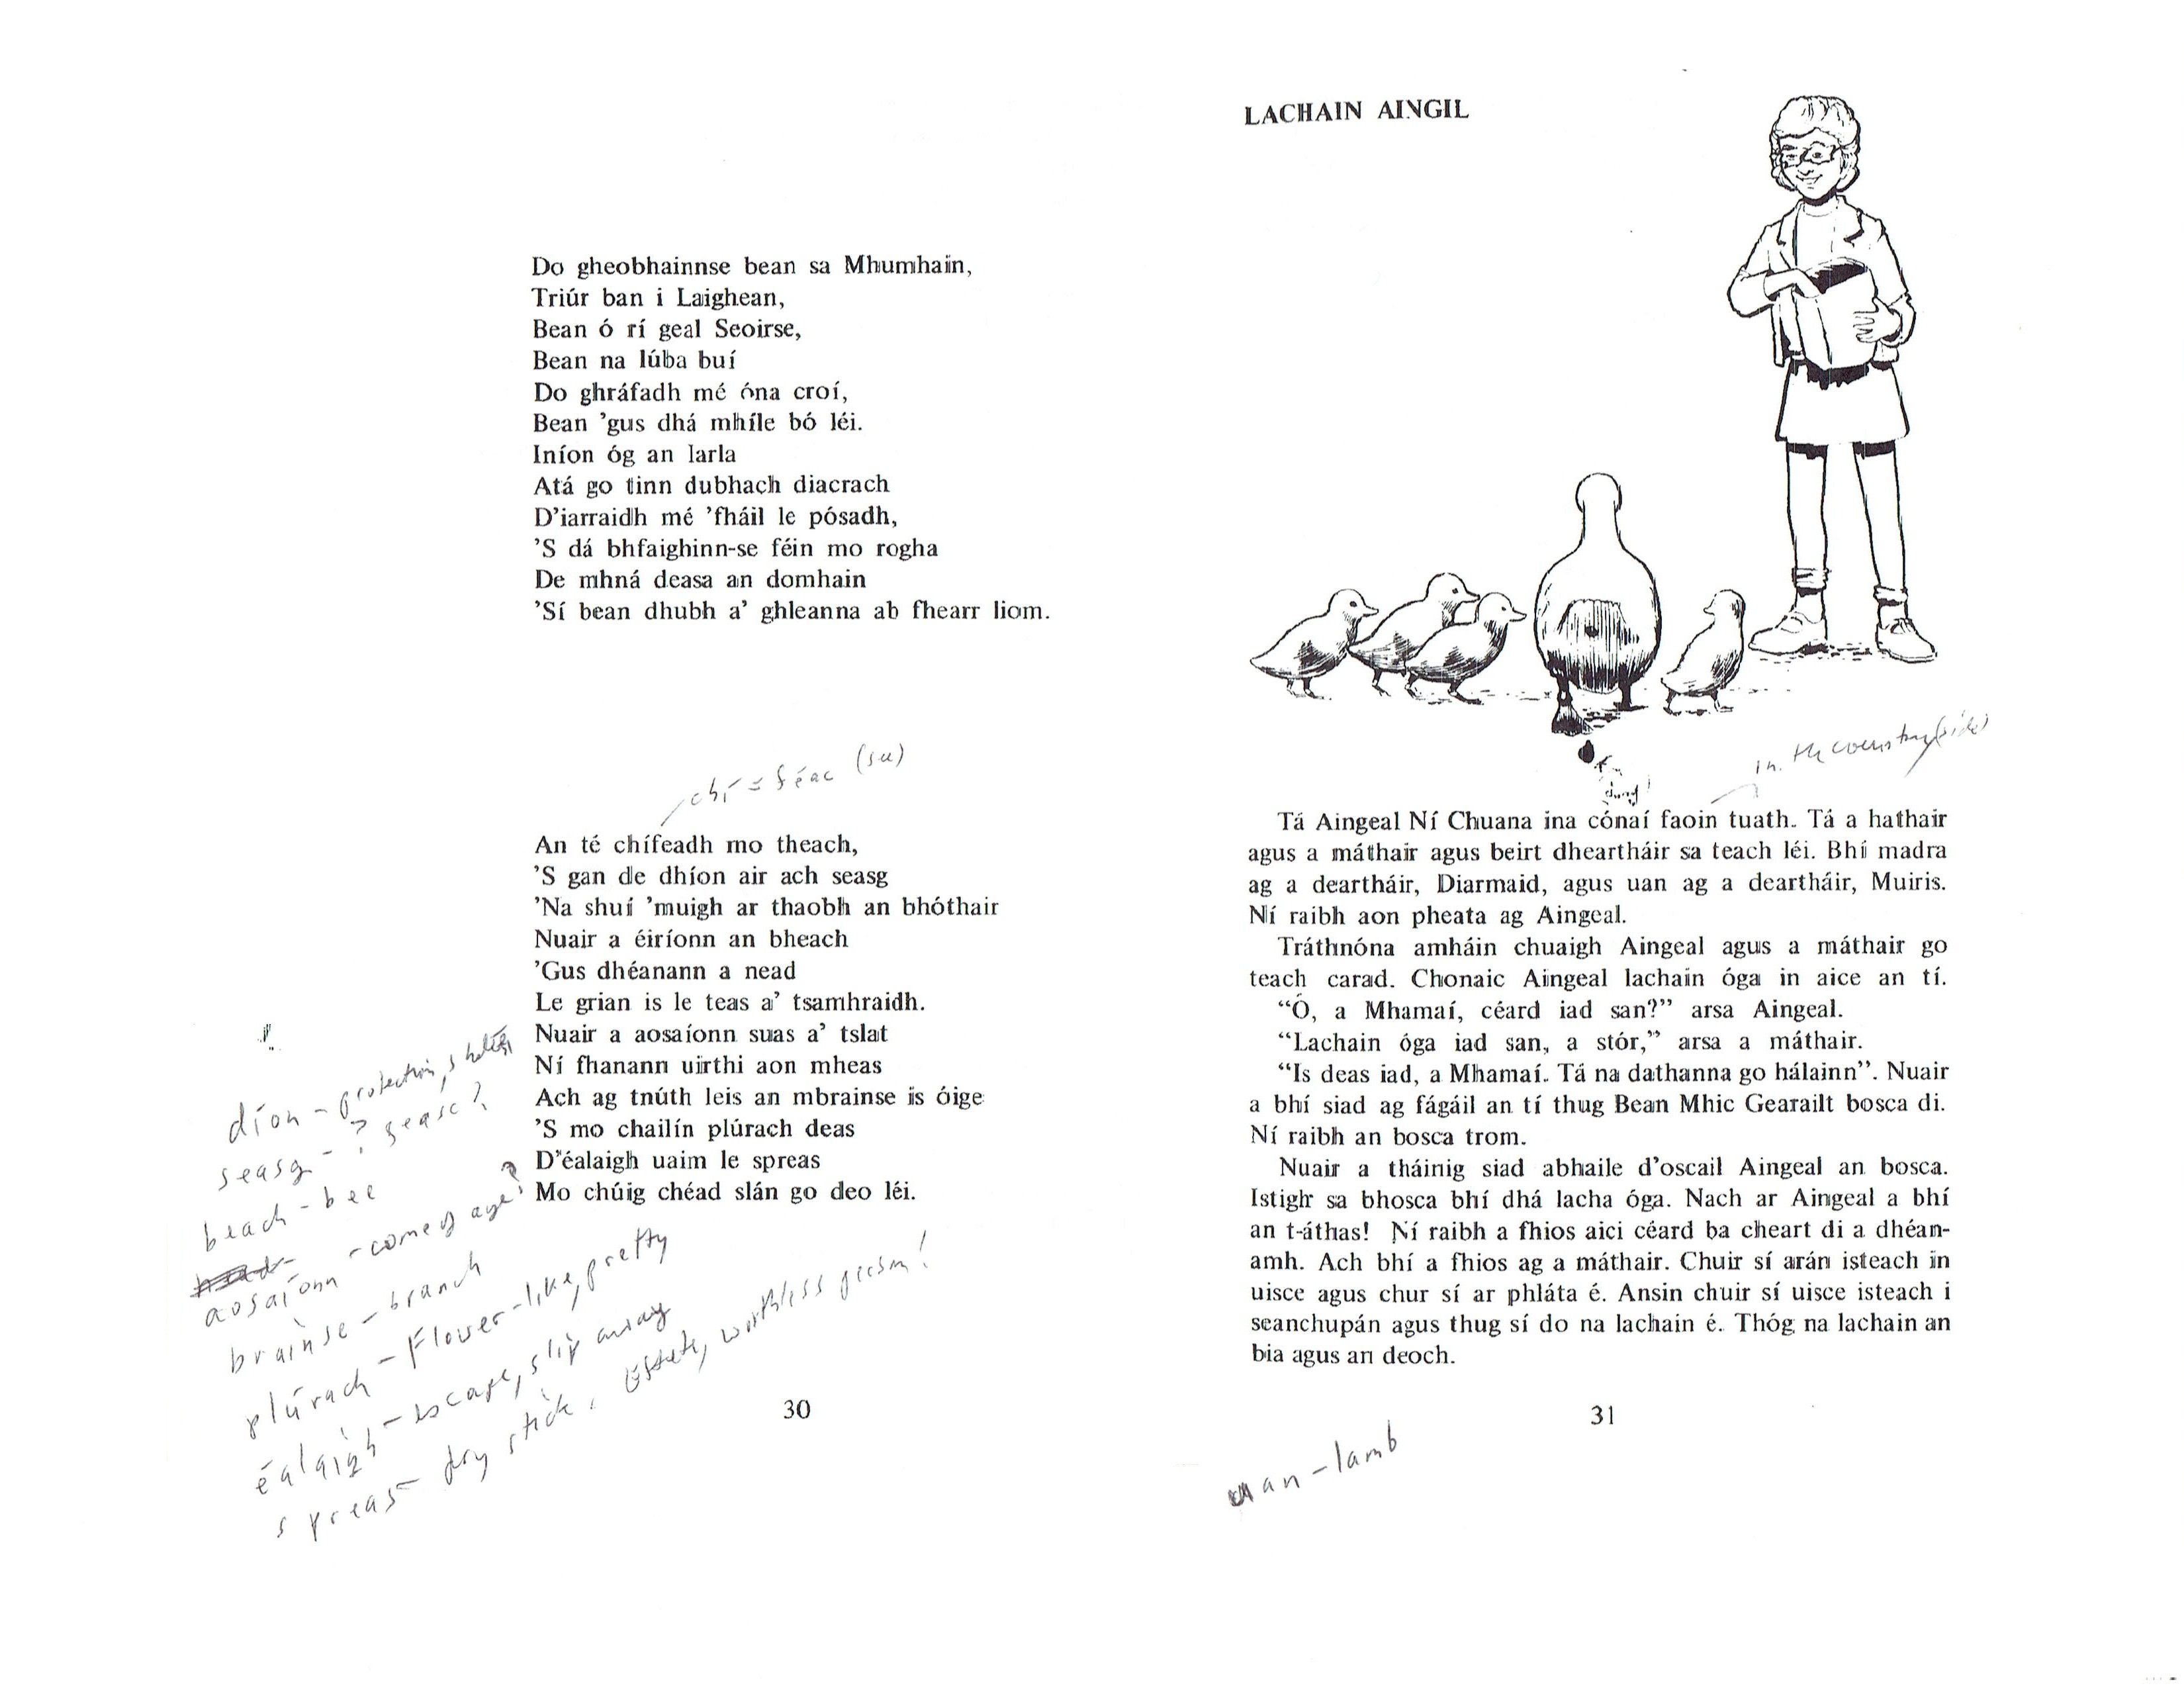 Do gheobhainnse bean sa Mhumhain,
Triúr ban i Laighean,
Bean ó rí geal Seoirse,
Bean na lúba buí
Do ghráfadh mé óna croí,
Bean ’gus dhá mhíle bó léi.
Iníon óg an Iarla
Atá go tinn dubhach diacrach
D’iarraidh mé ’fháil le pósadh,
’S dá bhfaighinn-se féin mo rogha
De mhná deasa an domhain
’Sí bean dhubh a’ ghleanna ab fhearr liom.
chí = féac (see)
An té chífeadh mo theach,
’S gan de dhíon air ach seasg
’Na shuí ’muigh ar thaobh an bhóthair
Nuair a éiríonn an bheach
’Gus dhéanann a nead
Le grian is le teas a’ tsamhraidh.
Nuair a aosaíonn suas a’ tslat
Ní fhanann uirthi aon mheas
Ach ag tnúth leis an mbrainse is óige
’S mo chailín plúrach deas
D’éalaigh uaim le spreas
Mo chúig chéad slán go deo léi.
díon - protection, shelter
seasg - ? geasc?
beach - bee
aosaíonn - come of age?
brainse - branch
plúrach - Flower-like, pretty
éalaigh - escape, slip away
spreas - dry stick. worthless person!
30
LACHAIN AINGIL
in the country(side)
Tá Aingeal Ní Chuana ina cónaí faoin tuath. Tá a hathair
agus a máthair agus beirt dheartháir sa teach léi. Bhí madra
ag a deartháir, Diarmaid, agus uan ag a deartháir, Muiris.
Ní raibh aon pheata ag Aingeal.
Tráthnóna amháin chuaigh Aingeal agus a máthair go
teach carad. Chonaic Aingeal lachain óga in aice an tí.
“Ó, a Mhamaí, céard iad san?” arsa Aingeal.
“Lachain óga iad san, a stór,” arsa a máthair.
“Is deas iad, a Mhamaí. Tá na dathanna go hálainn”. Nuair
a bhí siad ag fágáil an tí thug Bean Mhic Gearailt bosca di.
Ní raibh an bosca trom.
Nuair a tháinig siad abhaile d’oscail Aingeal an bosca.
Istigh sa bhosca bhí dhá lacha óga. Nach ar Aingeal a bhí
an t-áthas! Ní raibh a fhios aici céard ba cheart di a dhéan-
amh. Ach bhí a fhios ag a máthair. Chuir sí arán isteach in
uisce agus chur sí ar phláta é. Ansin chuir sí uisce isteach i
seanchupán agus thug sí do na lachain é. Thóg na lachain an
bia agus an deoch.
31
uan - lamb